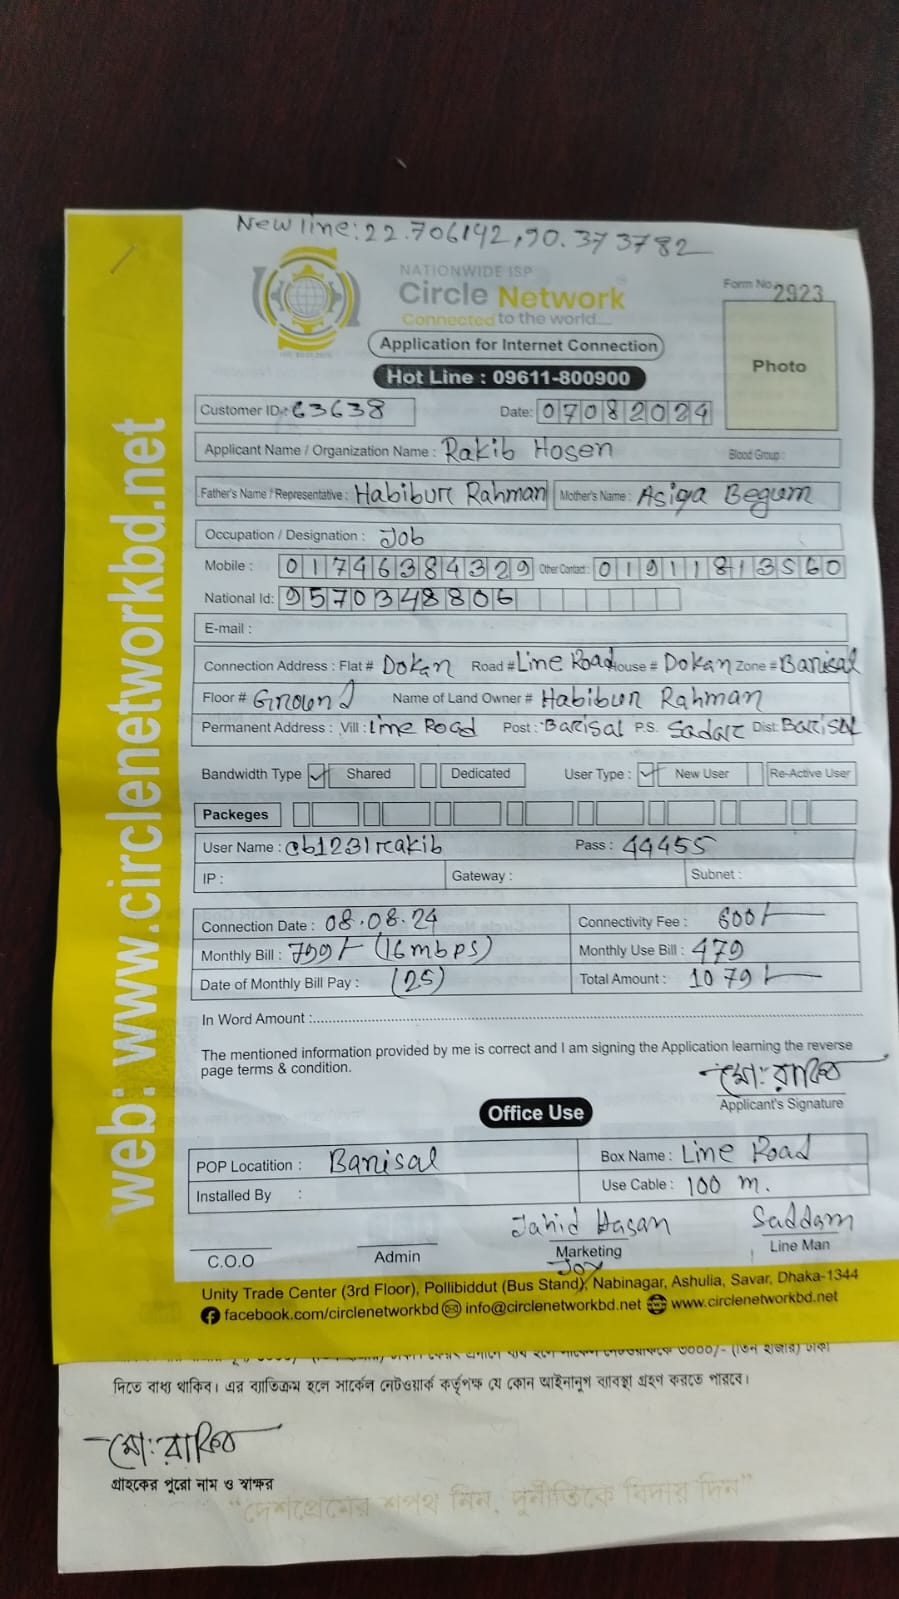 New line: 22.706142, 90.373782
NATIONWIDE ISP
Circle Network
Connected to the world....
Form No. 2923
Application for Internet Connection
Photo
Hot Line : 09611-800900
Customer ID.: 63638 Date: 07082024
Applicant Name / Organization Name : Rakib Hosen Blood Group :
Father's Name / Representative : Habibur Rahman Mother's Name : Asiya Begum
Occupation / Designation : Job
Mobile : 01746384329 Other Contact : 01911813560
National Id: 9570348806
E-mail :
Connection Address : Flat # Dokan Road # Line Road House # Dokan Zone # Barisal
Floor # Ground Name of Land Owner # Habibur Rahman
Permanent Address : Vill : Line Road Post : Barisal P.S. Sadar Dist: Barisal
Bandwidth Type ✓ Shared Dedicated User Type : ✓ New User Re-Active User
Packeges
User Name : cb1231rakib Pass : 44455
IP : Gateway : Subnet :
Connection Date : 08.08.24 Connectivity Fee : 600/-
Monthly Bill : 799/- (16mbps) Monthly Use Bill : 479
Date of Monthly Bill Pay : (25) Total Amount : 1079/-
In Word Amount :
The mentioned information provided by me is correct and I am signing the Application learning the reverse
page terms & condition.
মো: রাকিব
Applicant's Signature
Office Use
POP Locatition : Barisal Box Name : Line Road
Installed By : Use Cable : 100 m.
Jahid Hasan Saddam
C.O.O Admin Marketing Line Man
Joy
Unity Trade Center (3rd Floor), Pollibiddut (Bus Stand), Nabinagar, Ashulia, Savar, Dhaka-1344
facebook.com/circlenetworkbd info@circlenetworkbd.net www.circlenetworkbd.net
web: www.circlenetworkbd.net
৩০০০/- (তিন হাজার) টাকা
দিতে বাধ্য থাকিব। এর ব্যতিক্রম হলে সার্কেল নেটওয়ার্ক কর্তৃপক্ষ যে কোন আইনানুগ ব্যাবস্থা গ্রহণ করতে পারবে।
মো: রাকিব
গ্রাহকের পুরো নাম ও স্বাক্ষর
"দেশপ্রেমের শপথ নিন, দুর্নীতিকে বিদায় দিন"